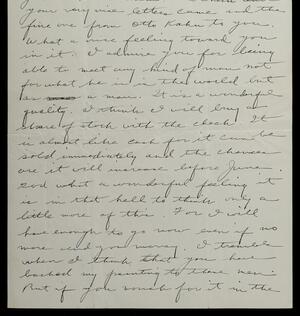 your very nice letter came and the
fine one from Otto Kahn to you.
What a nice feeling toward you
in it. I admire you for being
able to meet any kind of man not
for what he is in this world but
as a man. It is a wonderful
quality. I think I will buy a
share of stock with the check. It
is almost like cash for it can be
sold immediately and the chances
are it will increase before June.
God what a wonderful feeling it
is in that hell to think only a
little more of this. For I will
have enough to go now even if no
more send you money. I tremble
when I think that you have
backed my painting to these men.
But if you vouch for it in the